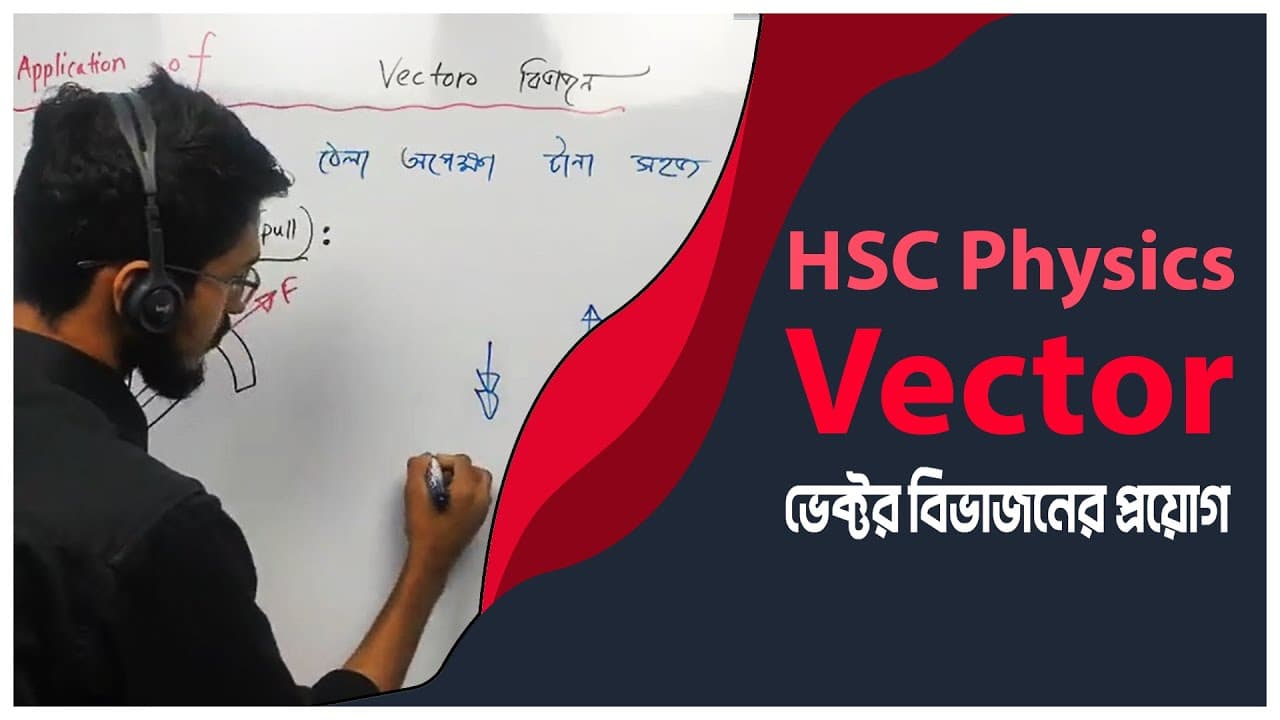 Application of Vector বিভাজন
ঠেলা অপেক্ষা টানা সহজ
pull) :
F
HSC Physics
Vector
ভেক্টর বিভাজনের প্রয়োগ